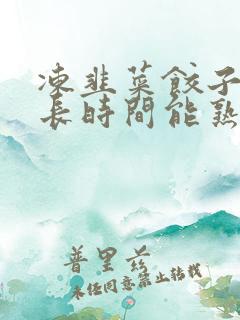 凍韭菜餃子
長時間能熟
普里茲
未經同意禁止轉載